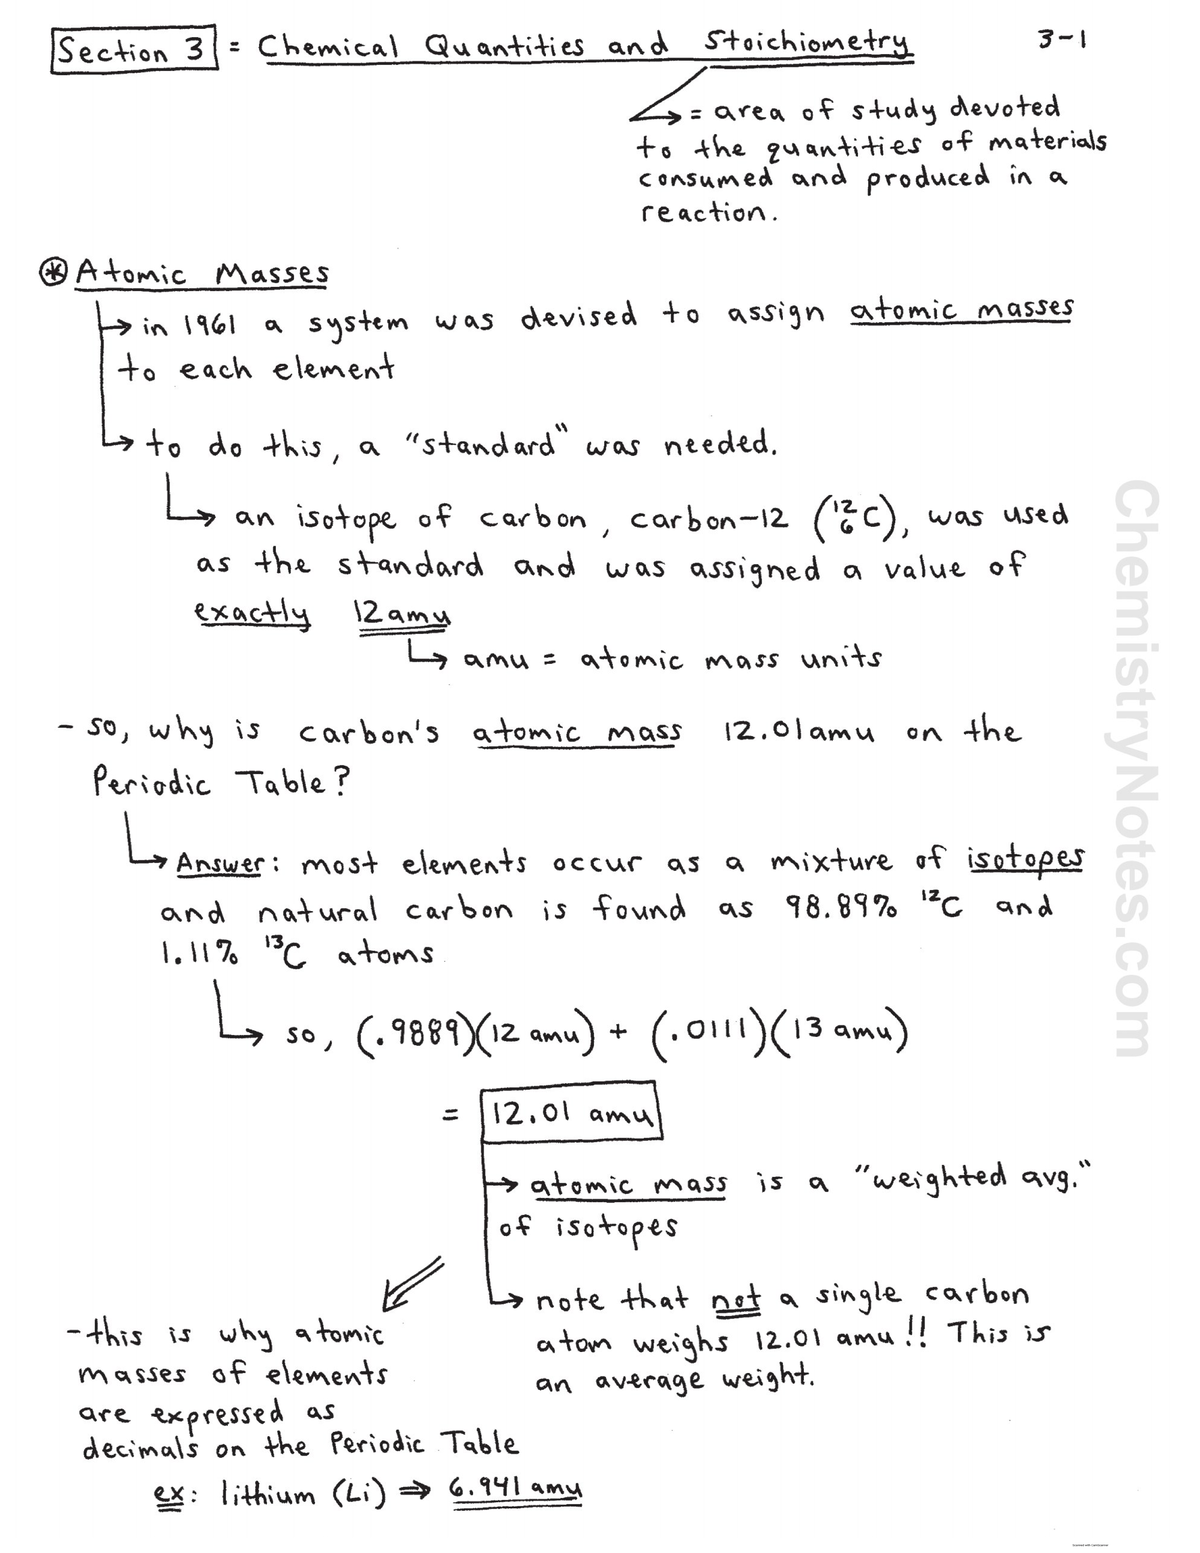 Section 3 = Chemical Quantities and Stoichiometry 3-1
= area of study devoted
to the quantities of materials
consumed and produced in a
reaction.
* Atomic Masses
→ in 1961 a system was devised to assign atomic masses
to each element
→ to do this, a "standard" was needed.
→ an isotope of carbon, carbon-12 (¹²₆C), was used
as the standard and was assigned a value of
exactly 12 amu
→ amu = atomic mass units
- so, why is carbon's atomic mass 12.01 amu on the
Periodic Table?
→ Answer: most elements occur as a mixture of isotopes
and natural carbon is found as 98.89% ¹²C and
1.11% ¹³C atoms
→ so, (.9889)(12 amu) + (.0111)(13 amu)
= 12.01 amu
→ atomic mass is a "weighted avg."
of isotopes
→ note that not a single carbon
atom weighs 12.01 amu!! This is
an average weight.
- this is why atomic
masses of elements
are expressed as
decimals on the Periodic Table
ex: lithium (Li) ⇒ 6.941 amu
ChemistryNotes.com